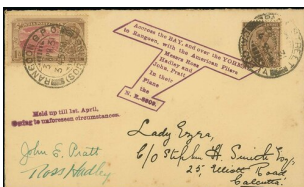 Across the BAY, and over the YOMAS
to Rangoon, with the American Fliers
Messrs Ross
Hadley and
John. Pratt
in their
Plane
the
N. R.
RANGOON
Held up till 1st. April,
Owing to unforeseen circumstances.
John S. Pratt
Ross Hadley
Lady Ezra,
c/o Stephen H. Smith Esq,
25, Elliott Road
Calcutta.